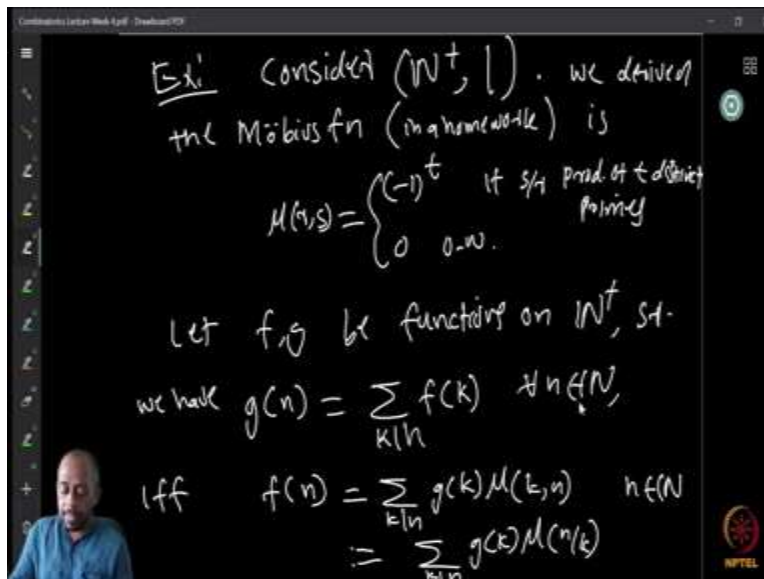 Combinatorics Lecture Week 4.pdf - Drawboard PDF
Ex: Consider (ℕ⁺, |). we derived
the Möbius fn (in a homework) is
μ(r,s) = { (-1)^t if s/r prod. of t distinct
primes
0 o.w.
Let f,g be functions on ℕ⁺, s.t.
we have g(n) = ∑_{k|n} f(k) ∀ n ∈ ℕ,
iff f(n) = ∑_{k|n} g(k) μ(k,n) n ∈ ℕ
:= ∑_{k|n} g(k) μ(n/k)
NPTEL